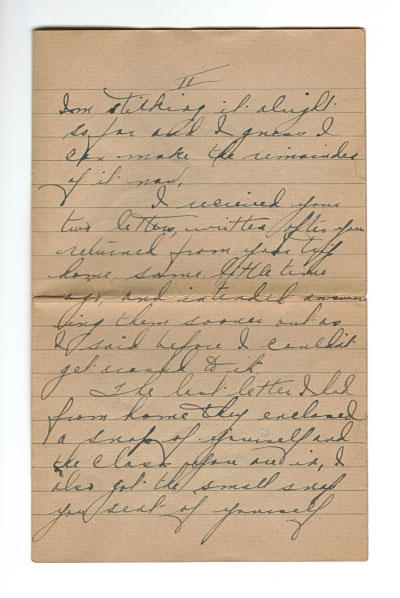 II
I'm sticking it alright
so far and I guess I
can make the remainder
of it now.
I received your
two letters, written after you
returned from your trip
home, some little time
ago, and intended answer
ing them sooner but as
I said before I couldn't
get around to it.
The last letter I had
from home they enclosed
a snap of yourself and
the class you are in, I
also got the small snap
you sent of yourself